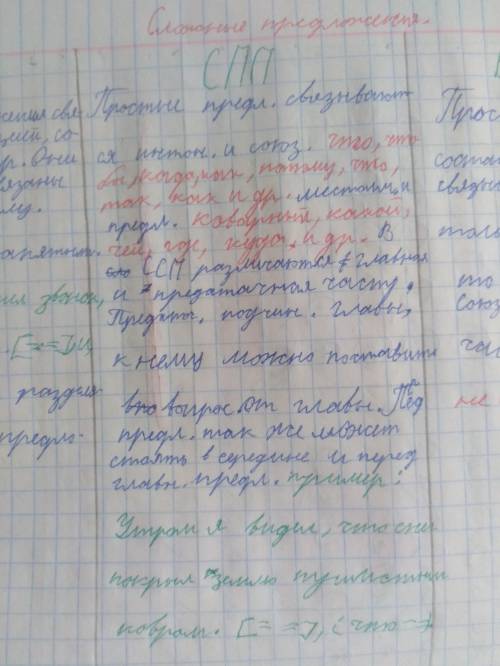 Сложные предложения.
СПП
Простые предл. связывают-
ся интон. и союз. что, что
бы, когда, как, потому, что,
так, как и др. местоим. и
предл. который, какой,
чей, где, куда. и др. В
ССП различаются главная
и предаточная часту.
Предаты. подчин. главн,
к нему можно поставить
вопрос от главн.
предл. так же может
стоять в середине и перед
главн. предл. пример:
Утром я видел, что снег
покрыл землю пушистым
ковром. [- =], (что - =)
ения свя
цией, со
р. Они
язаны
му.
апятыми.
звонок,
[- =], и
раздел
предло-
Прос
состо
связы
толь
то
Союз
час
не